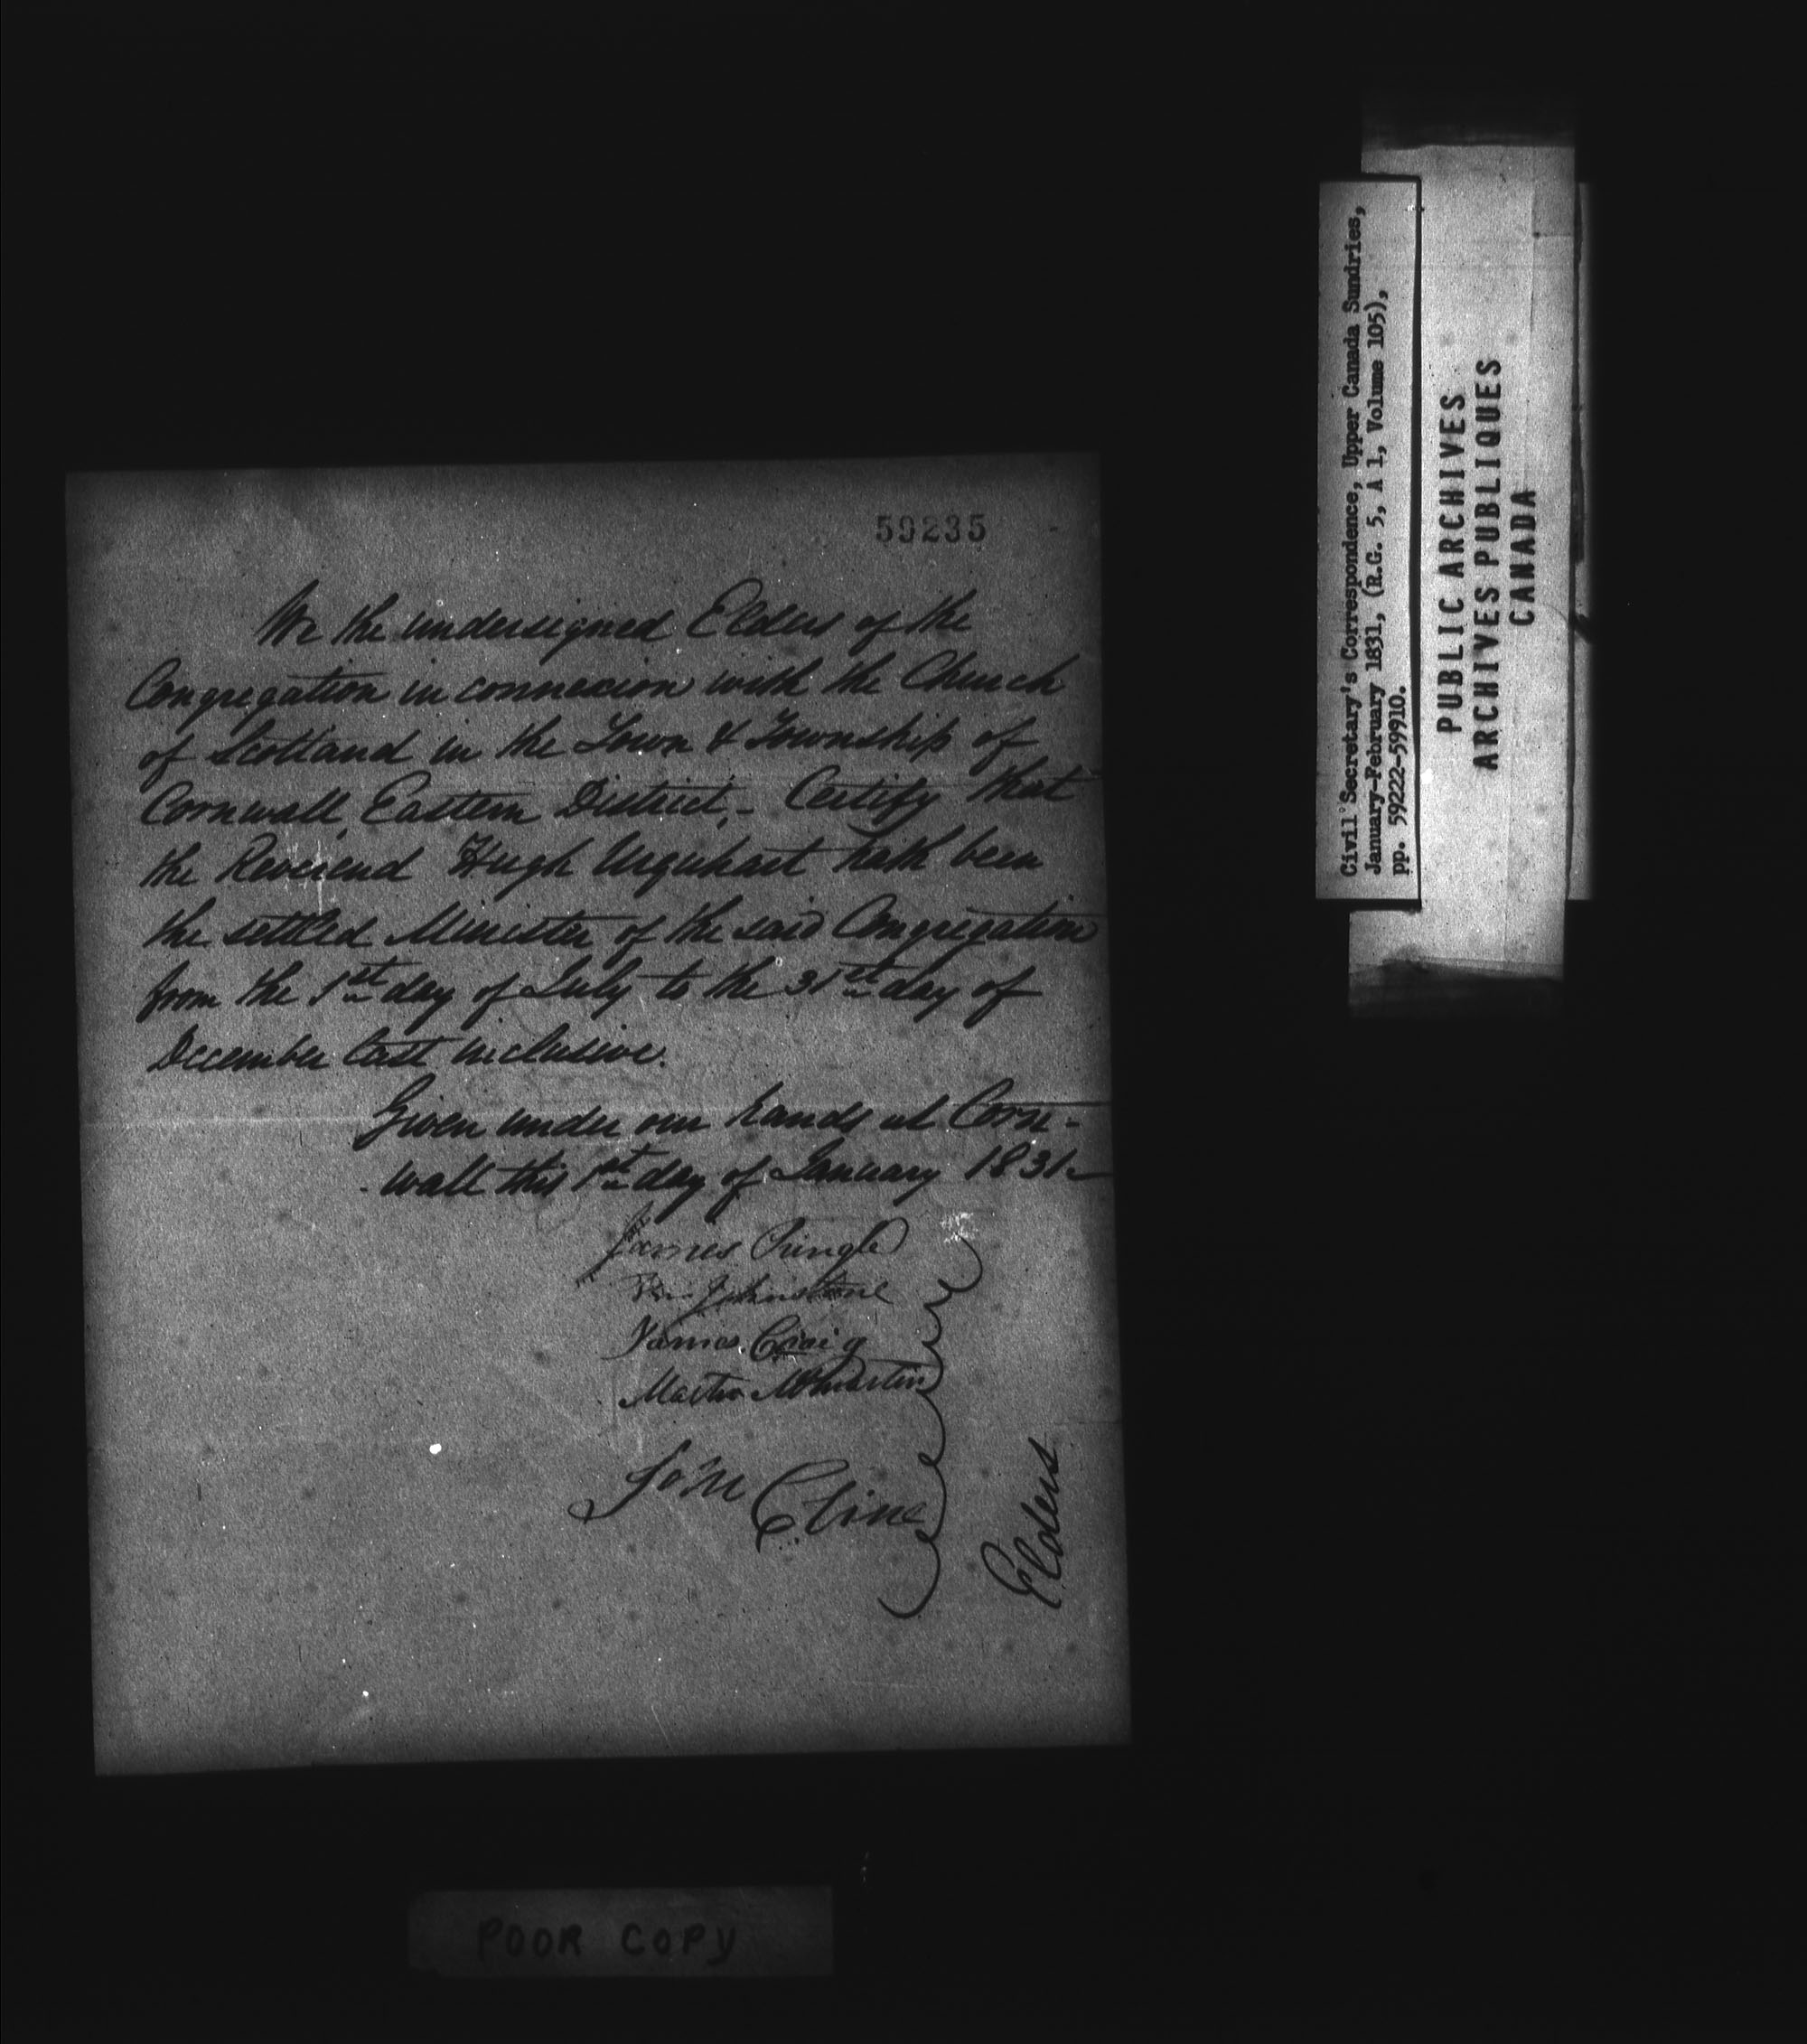 59235
We the undersigned Elders of the
Congregation in connexion with the Church
of Scotland in the Town & Township of
Cornwall, Eastern District,- Certify that
the Reverend Hugh Urquhart hath been
the settled Minister of the said Congregation
from the 1st day of July to the 31st day of
December last inclusive.
Given under our hands at Corn-
-wall this 1st day of January 1831-
James Pringle
Johnstone
James Craig
Martin McMartin
John Cline
Elders
Civil Secretary's Correspondence, Upper Canada Sundries,
January-February 1831, (R.G. 5, A 1, Volume 105),
pp. 59222-59910.
PUBLIC ARCHIVES
ARCHIVES PUBLIQUES
CANADA
POOR COPY